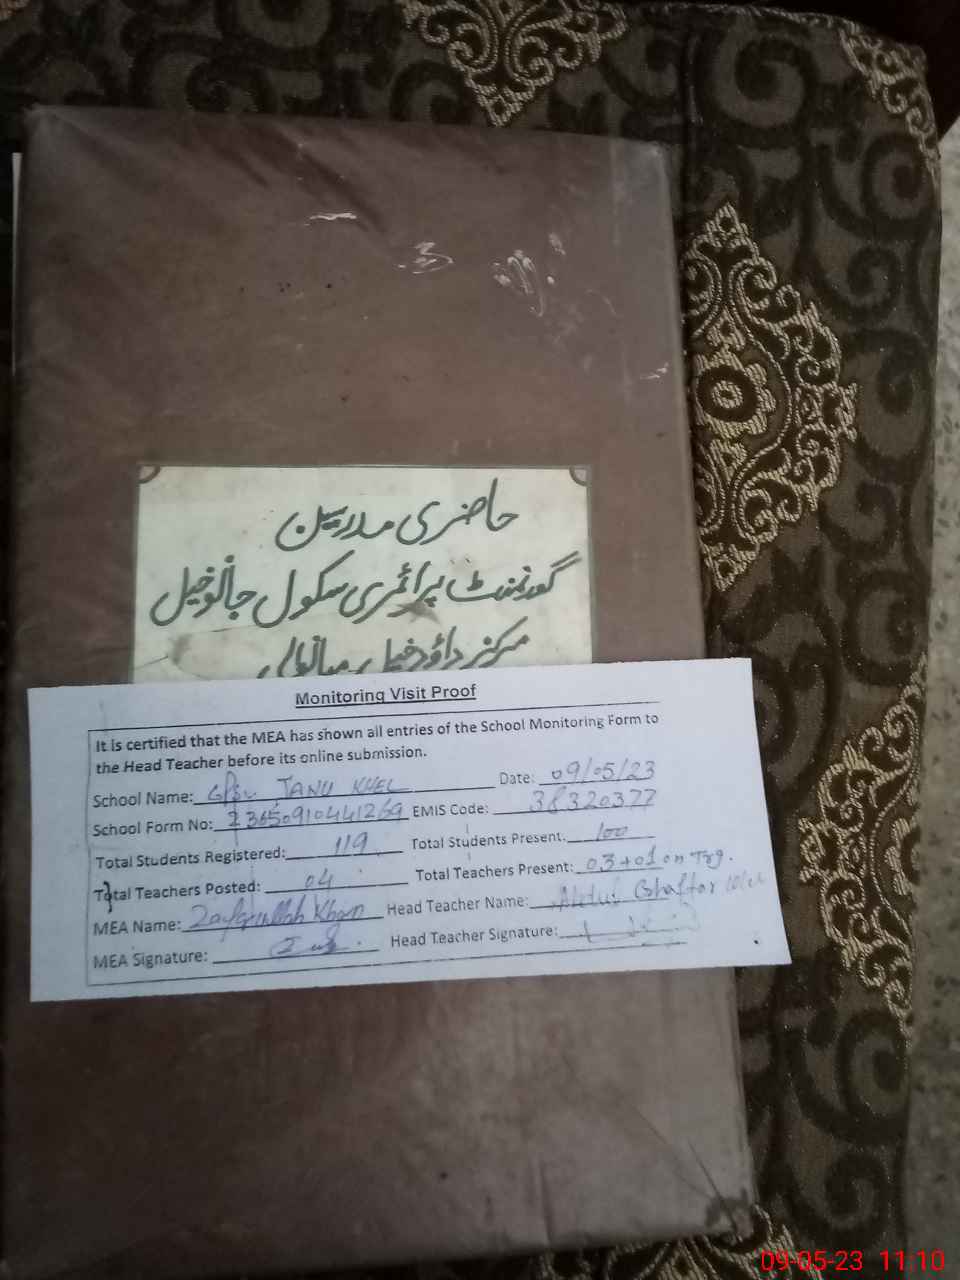 حاضری مدرسین
گورنمنٹ پرائمری سکول جانوخیل
مرکز داؤدخیل میانوالی
Monitoring Visit Proof
It is certified that the MEA has shown all entries of the School Monitoring Form to
the Head Teacher before its online submission.
School Name: GPS JANU KHEL Date: 09/05/23
School Form No: EMIS Code: 38320377
Total Students Registered: 119 Total Students Present: 100
Total Teachers Posted: 04 Total Teachers Present: 03+01 on Trg.
MEA Name: Zafarullah Khan Head Teacher Name: Abdul Ghaffar
MEA Signature: Head Teacher Signature:
09-05-23 11:10